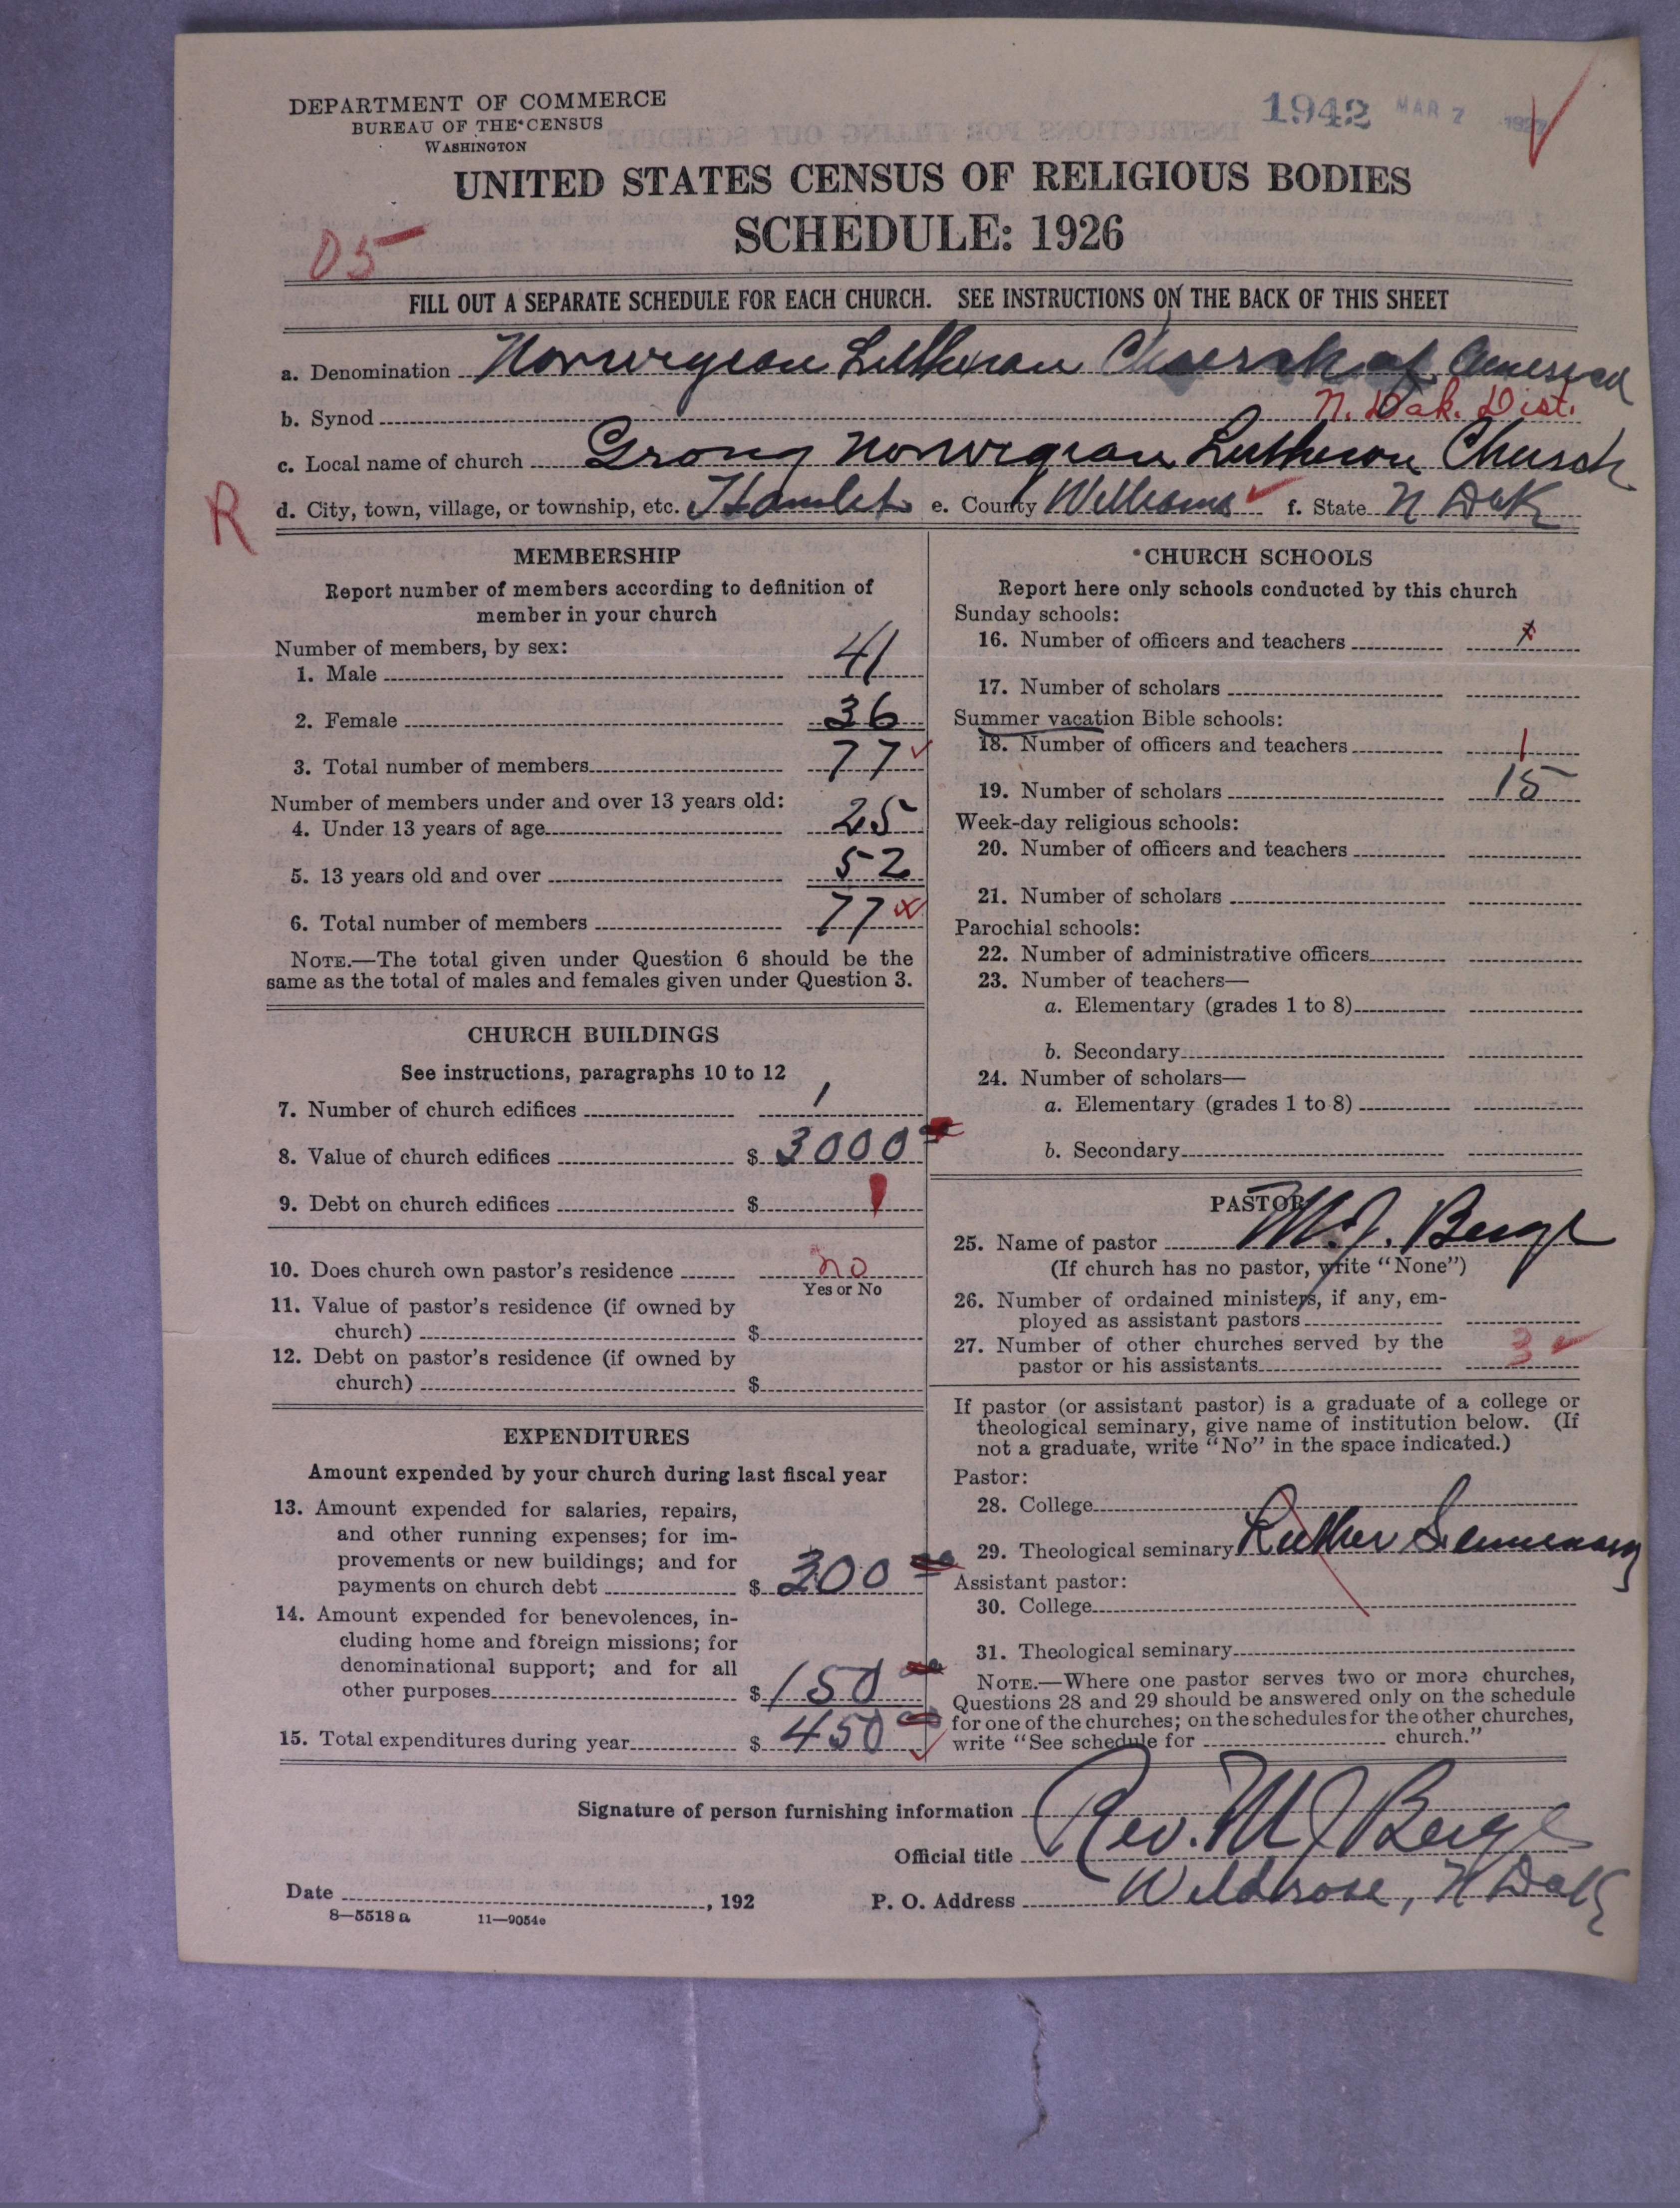 DEPARTMENT OF COMMERCE
BUREAU OF THE CENSUS
WASHINGTON
1942 MAR 2 1927
UNITED STATES CENSUS OF RELIGIOUS BODIES
SCHEDULE: 1926
05
FILL OUT A SEPARATE SCHEDULE FOR EACH CHURCH. SEE INSTRUCTIONS ON THE BACK OF THIS SHEET
a. Denomination Norwegian Lutheran Church of America
b. Synod N. Dak. Dist.
c. Local name of church Grong Norwegian Lutheran Church
R
d. City, town, village, or township, etc. Hamlet e. County Williams f. State N Dak
MEMBERSHIP
Report number of members according to definition of
member in your church
Number of members, by sex:
1. Male 41
2. Female 36
3. Total number of members 77
Number of members under and over 13 years old:
4. Under 13 years of age 25
5. 13 years old and over 52
6. Total number of members 77
NOTE.—The total given under Question 6 should be the
same as the total of males and females given under Question 3.
CHURCH BUILDINGS
See instructions, paragraphs 10 to 12
7. Number of church edifices 1
8. Value of church edifices $ 3000
9. Debt on church edifices $
10. Does church own pastor's residence no
Yes or No
11. Value of pastor's residence (if owned by
church) $
12. Debt on pastor's residence (if owned by
church) $
EXPENDITURES
Amount expended by your church during last fiscal year
13. Amount expended for salaries, repairs,
and other running expenses; for im-
provements or new buildings; and for
payments on church debt $ 300
14. Amount expended for benevolences, in-
cluding home and foreign missions; for
denominational support; and for all
other purposes $ 150
15. Total expenditures during year $ 450
CHURCH SCHOOLS
Report here only schools conducted by this church
Sunday schools:
16. Number of officers and teachers
17. Number of scholars
Summer vacation Bible schools:
18. Number of officers and teachers 1
19. Number of scholars 15
Week-day religious schools:
20. Number of officers and teachers
21. Number of scholars
Parochial schools:
22. Number of administrative officers
23. Number of teachers—
a. Elementary (grades 1 to 8)
b. Secondary
24. Number of scholars—
a. Elementary (grades 1 to 8)
b. Secondary
PASTOR
25. Name of pastor M. J. Berge
(If church has no pastor, write "None")
26. Number of ordained ministers, if any, em-
ployed as assistant pastors
27. Number of other churches served by the
pastor or his assistants 3
If pastor (or assistant pastor) is a graduate of a college or
theological seminary, give name of institution below. (If
not a graduate, write "No" in the space indicated.)
Pastor:
28. College
29. Theological seminary Luther Seminary
Assistant pastor:
30. College
31. Theological seminary
NOTE.—Where one pastor serves two or more churches,
Questions 28 and 29 should be answered only on the schedule
for one of the churches; on the schedules for the other churches,
write "See schedule for church."
Signature of person furnishing information Rev. M J Berge
Official title
Date , 192 P. O. Address Wildrose, N Dak
8—5518 a 11—9054e